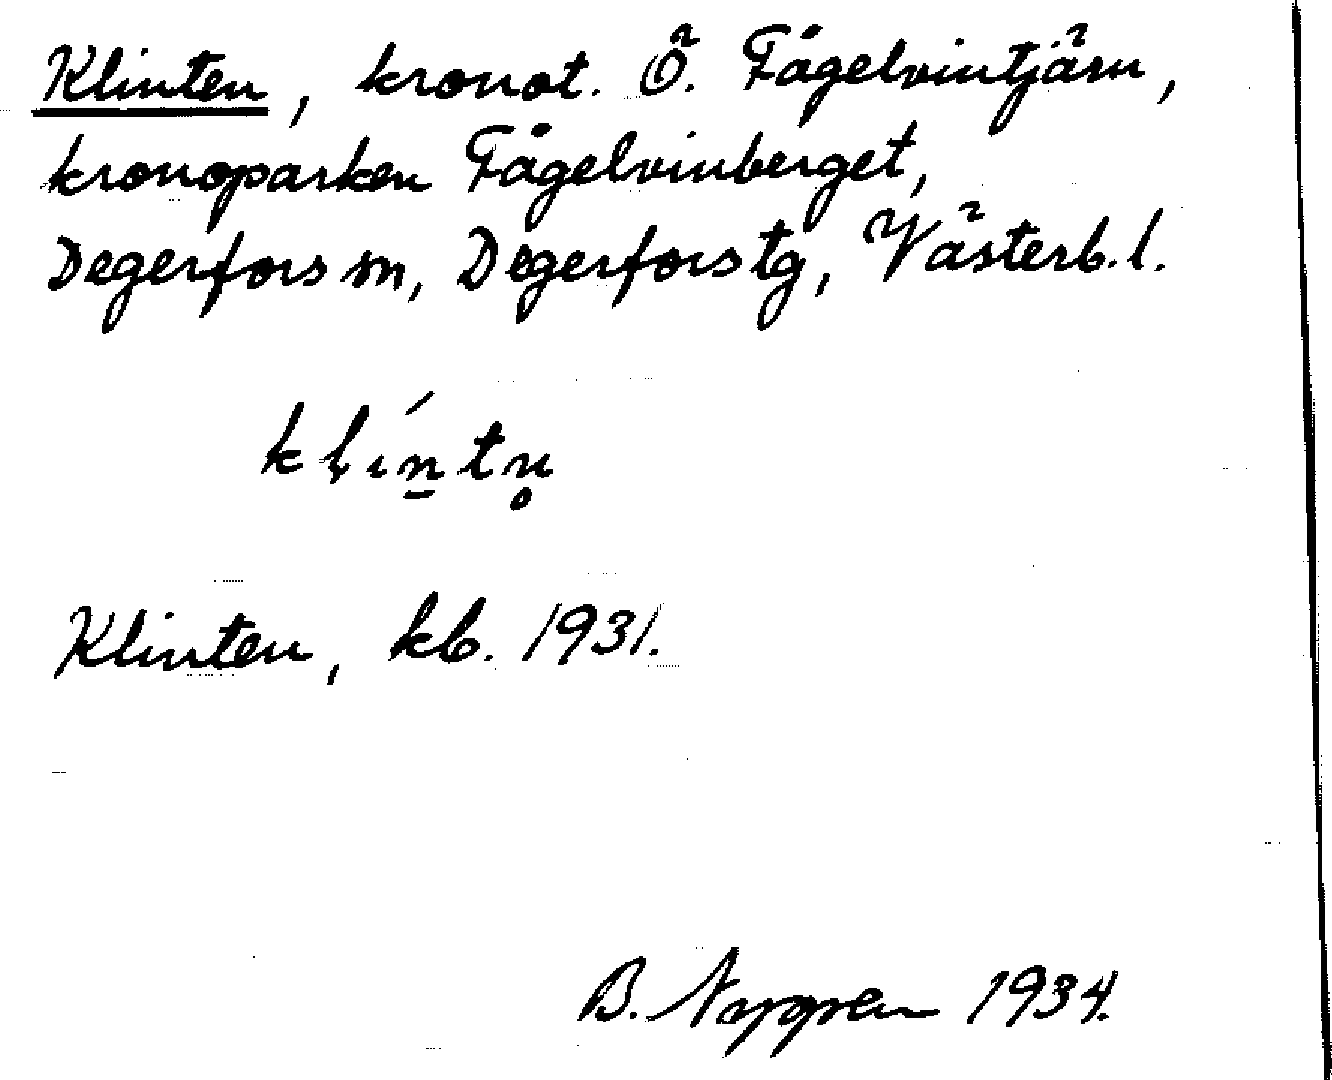 Klinten, kronot. Ö. Fågelvintjärn,
kronoparken Fågelvinberget,
Degerfors sn, Degerfors tg, Västerb. l.
klín̠tn̥
Klinten, kb. 1931.
B. 1934.